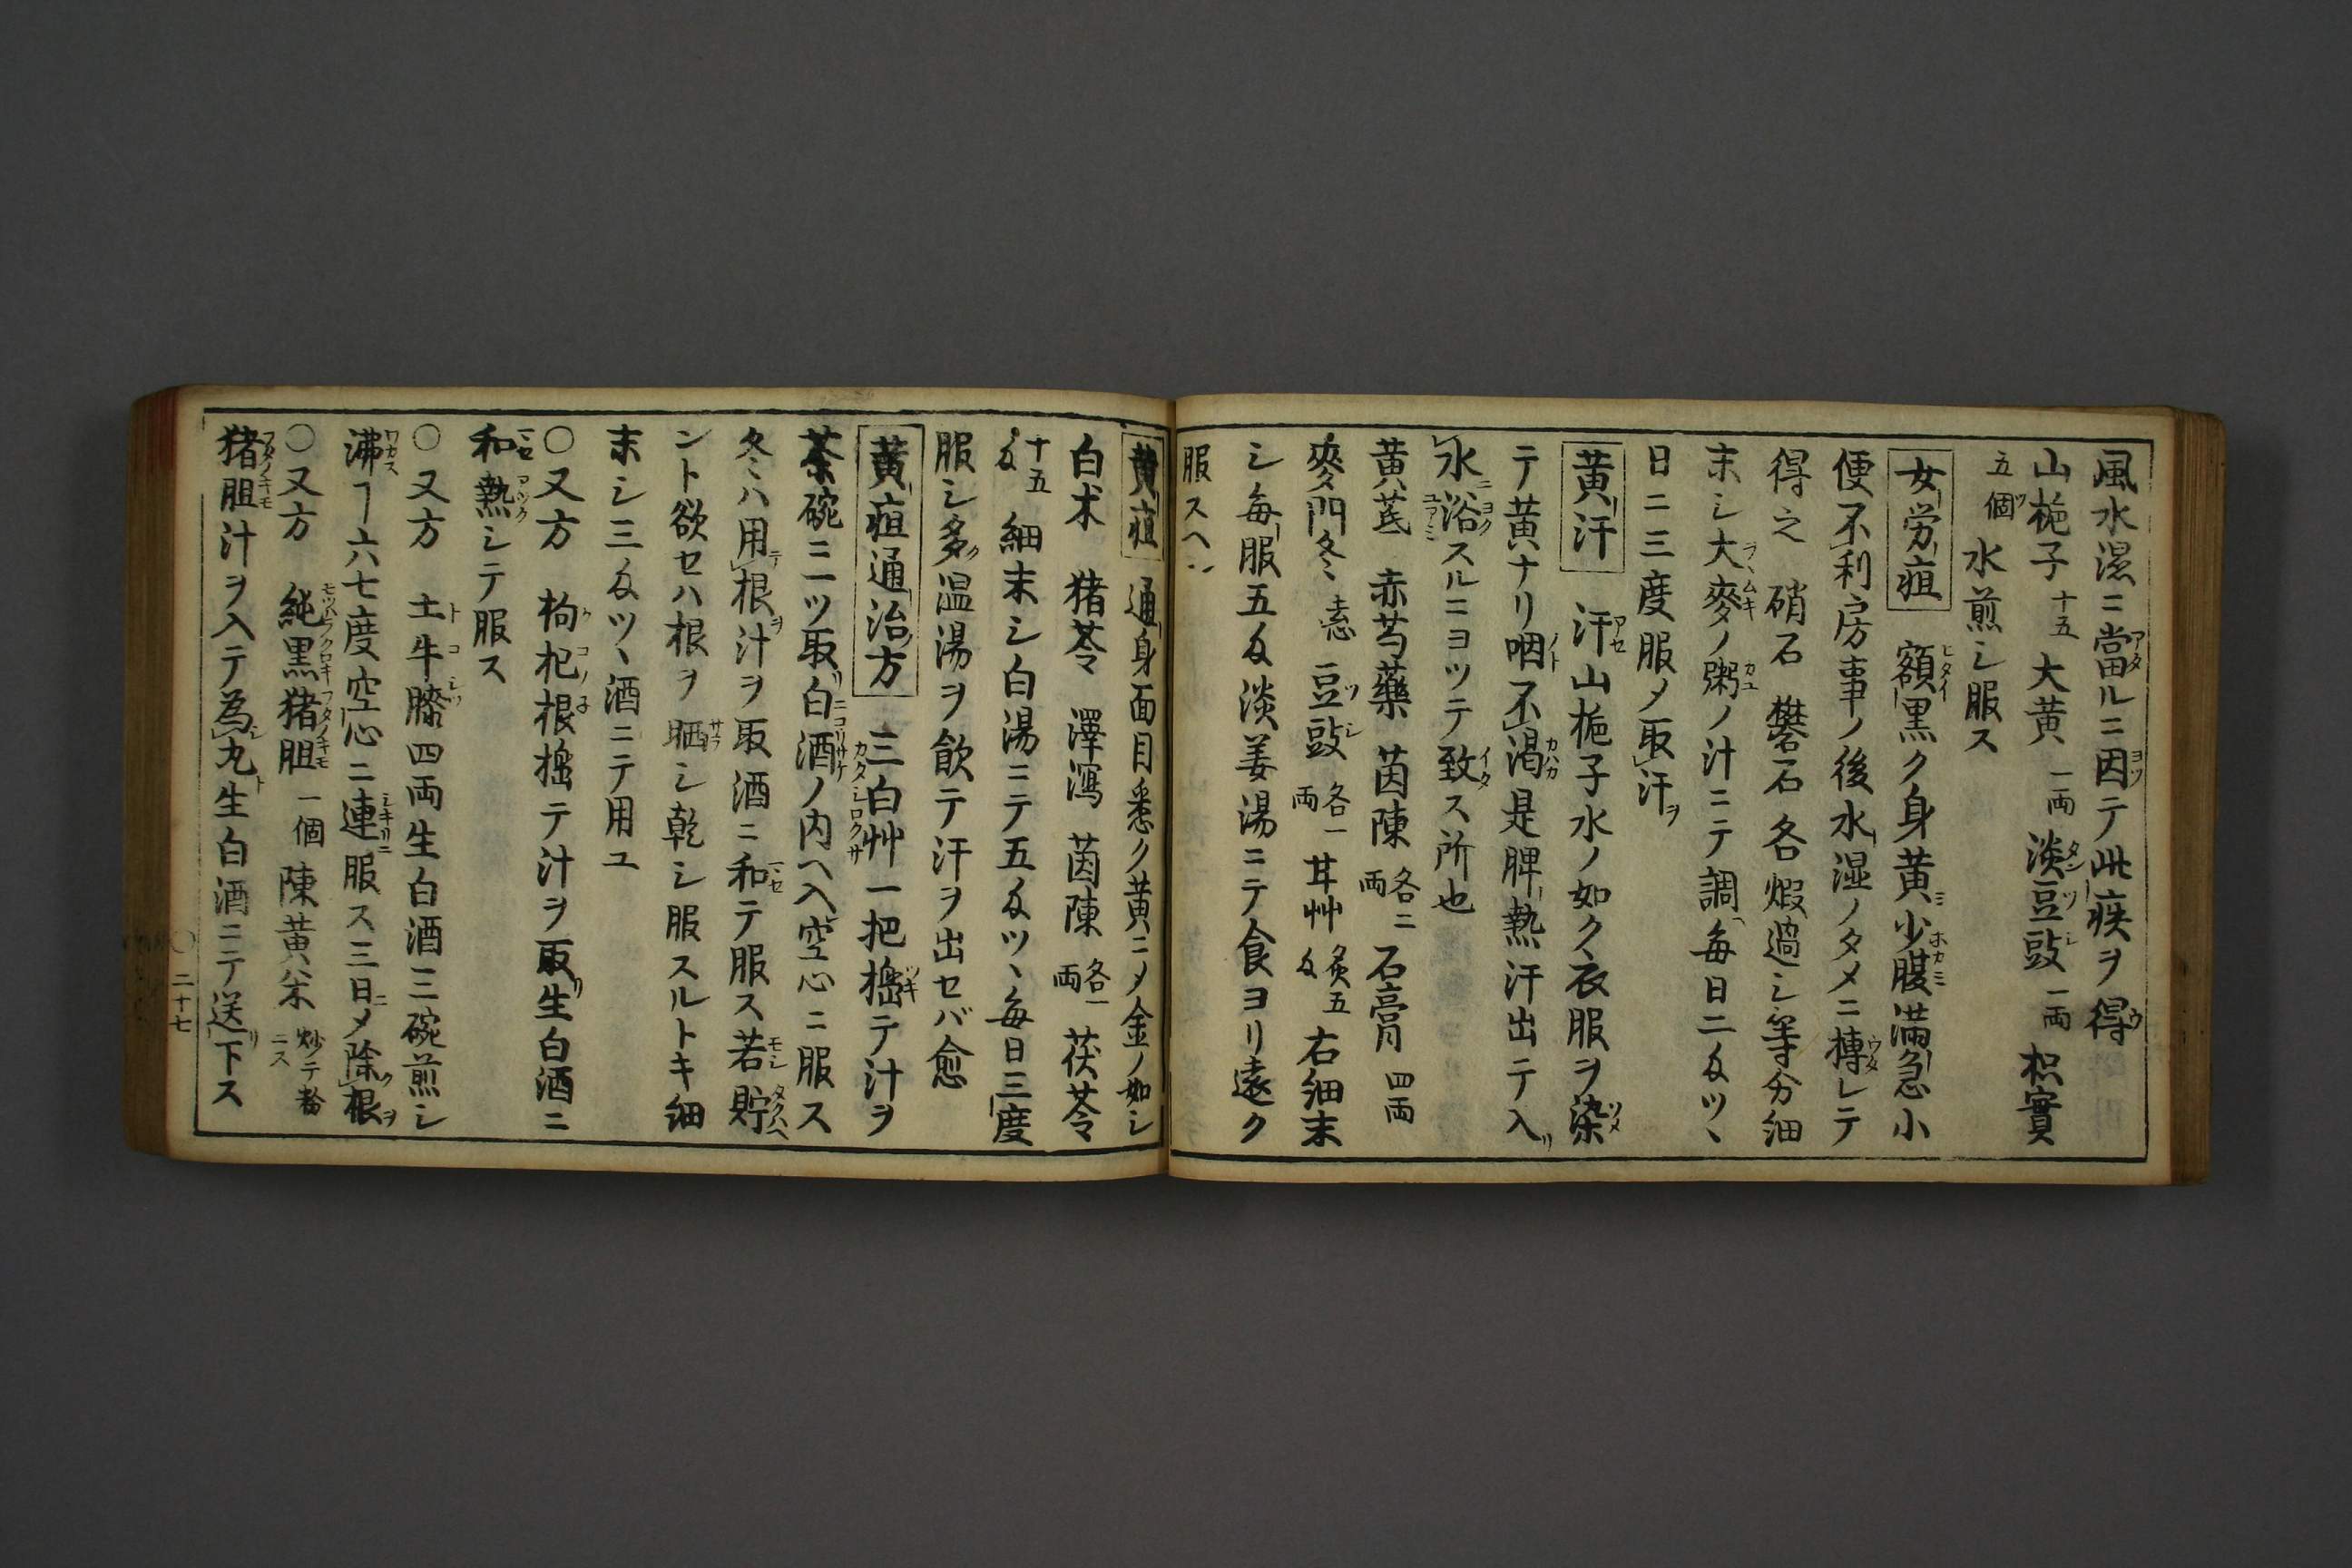 風水濕ニ當ルニ因テ此疾ヲ得
山梔子十五大黄一両淡豆豉一両枳實
五個水煎シ服ス
女労疸 額黒ク身黄少腹満急小
便不利房事ノ後水湿ノタメニ摶レテ
得之 硝石 礬石 各煆過シ等分細
末シ大麥ノ粥ノ汁ニテ調毎日二匁ツヽ
日ニ三度服メ取汗
黄汗 汗山梔子水ノ如ク衣服ヲ染
テ黄ナリ咽不渇是脾熱汗出テ入
水浴スルニヨツテ致ス所也
黄茋 赤芍藥 茵陳各二両石膏四両
麥門冬去心豆豉各一両甘艸炙五匁右細末
シ毎服五匁淡姜湯ニテ食ヨリ遠ク
服スヘシ
黄疸 通身面目悉ク黄ニメ金ノ如シ
白朮 猪苓 澤瀉 茵陳各一両茯苓
十五匁細末シ白湯ニテ五匁ツヽ毎日三度
服シ多温湯ヲ飲テ汗ヲ出セバ愈
黄疸通治方 三白艸一把搗テ汁ヲ
茶碗ニ一ツ取白酒ノ内ヘ入空心ニ服ス
冬ハ用根汁ヲ取酒ニ和テ服ス若貯
ント欲セハ根ヲ晒シ乾シ服スルトキ細
末シ三匁ツヽ酒ニテ用ユ
〇又方 枸杞根搗テ汁ヲ取生白酒ニ
和熱シテ服ス
〇又方 土牛膝四両生白酒三碗煎シ
沸ヿ六七度空心ニ連服ス三日メ除根
〇又方 純黒猪胆一個陳黄米炒テ末ニス
猪胆汁ヲ入テ為丸生白酒ニテ送下ス
〇二十七